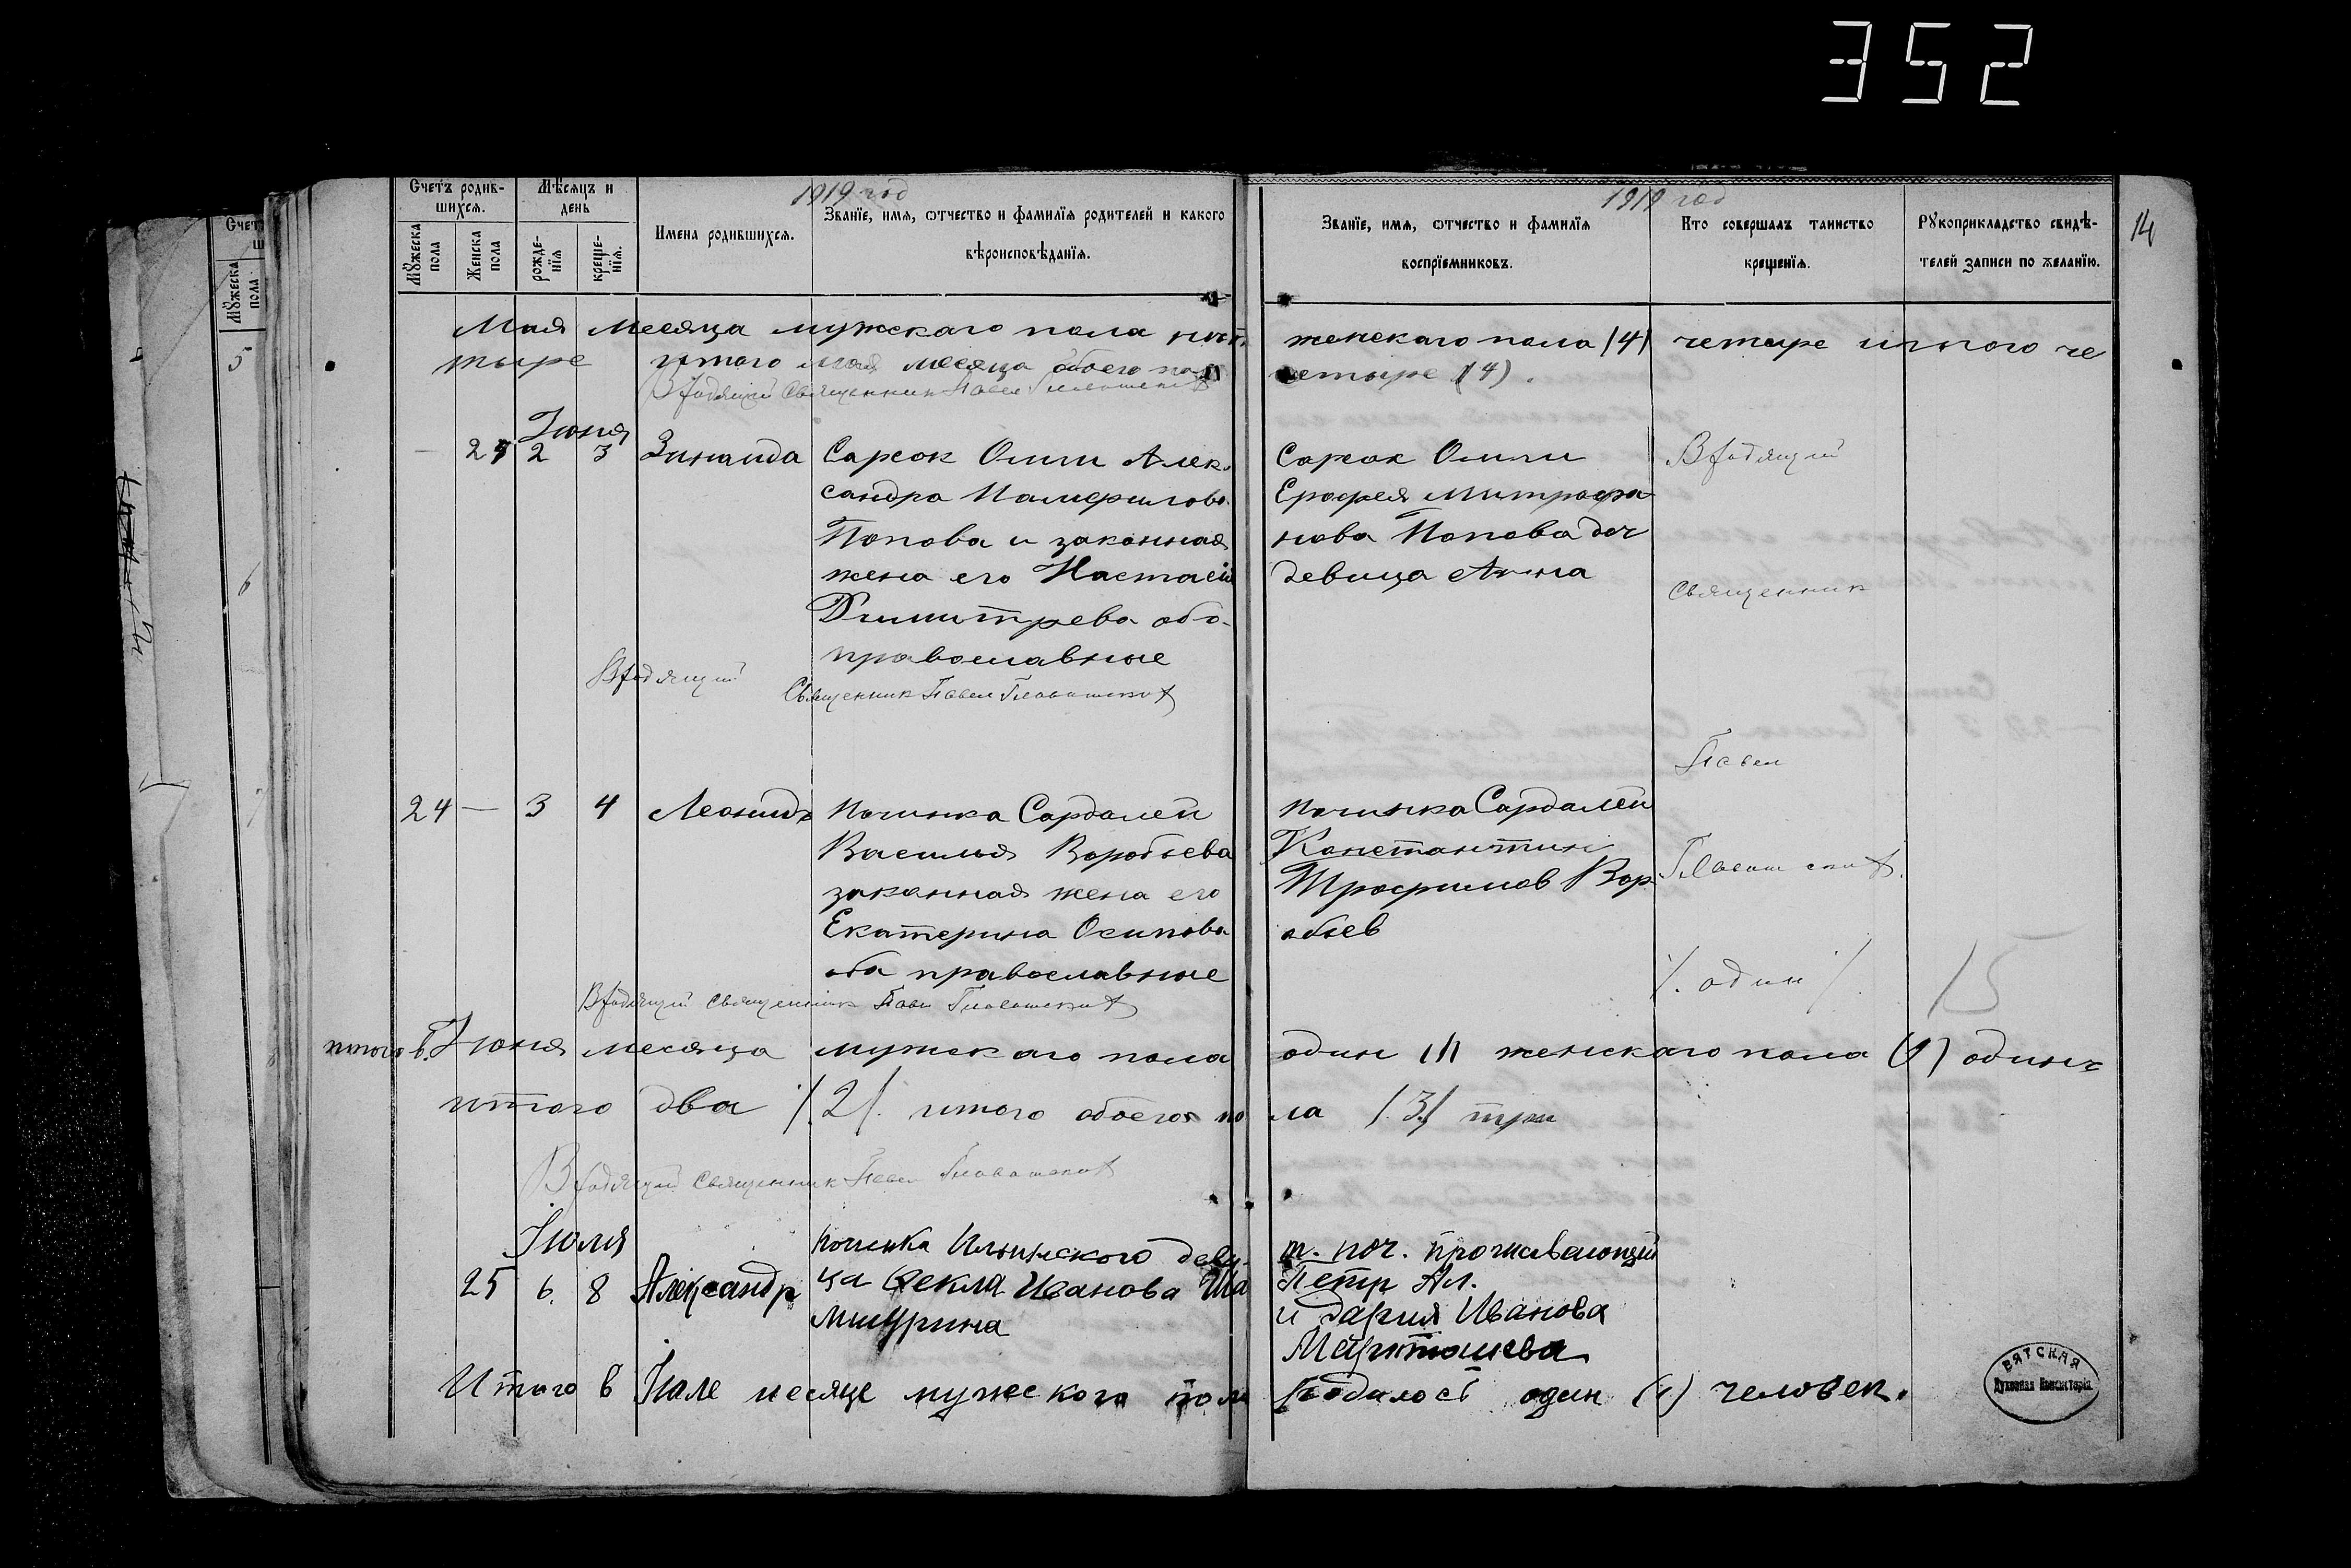 352
1919 год
1919 год
14
Счетъ родив-
шихся.
Мѣсяцъ и
день
Мужеска
пола
Женска
пола
рожде-
нія
креще-
нія.
Имена родившихся.
Званіе, имя, отчество и фамилія родителей и какого
вѣроисповѣданія.
Званіе, имя, отчество и фамилія
воспріемниковъ.
Кто совершалъ таинство
крещенія.
Рукоприкладство свидѣ-
телей записи по желанію.
Счет
Мужеска
пола
5
6
7
Мая месяца мужскаго пола женскаго пола (4) четыре итого че
тыре итого мая месяца обоего пола четыре (4).
Входящий Священник Павел
Июня
2 3 Зинаида
Сарок Омги Алек
сандра Памфилова
Попова и законная
жена его Настасия
Димитрева оба
православные
Сарок Омги
Ерофея Митрофа
нова Попова доч
девица Анна
Входящий
Священник
Павел
Входящий
Священник Павел
24 — 3 4 Леонидъ
Починка Сардалей
Василья Воробьева
законная жена его
Екатерина Осипова
оба православные
починка Сардалей
Константин
Трофимов Вор
обьев
Входящий священник Павел
/. один /.
15
итого в Июня месяца мужскаго пола один (1) женскаго пола (1) одинъ
итого два /.2/. итого обоего пола /.3./ три
Входящий Священник Павел
Июля
25 6. 8 Александр
починка Ильинского деви
ца Фекла Иванова Ша
мшурина
т. поч. проживающий
Петр Ал.
и Дария Иванова
Итого в Июле месяце мужеского пола родилось один (1) человек.
ВЯТСКАЯ
Духовная Консисторія